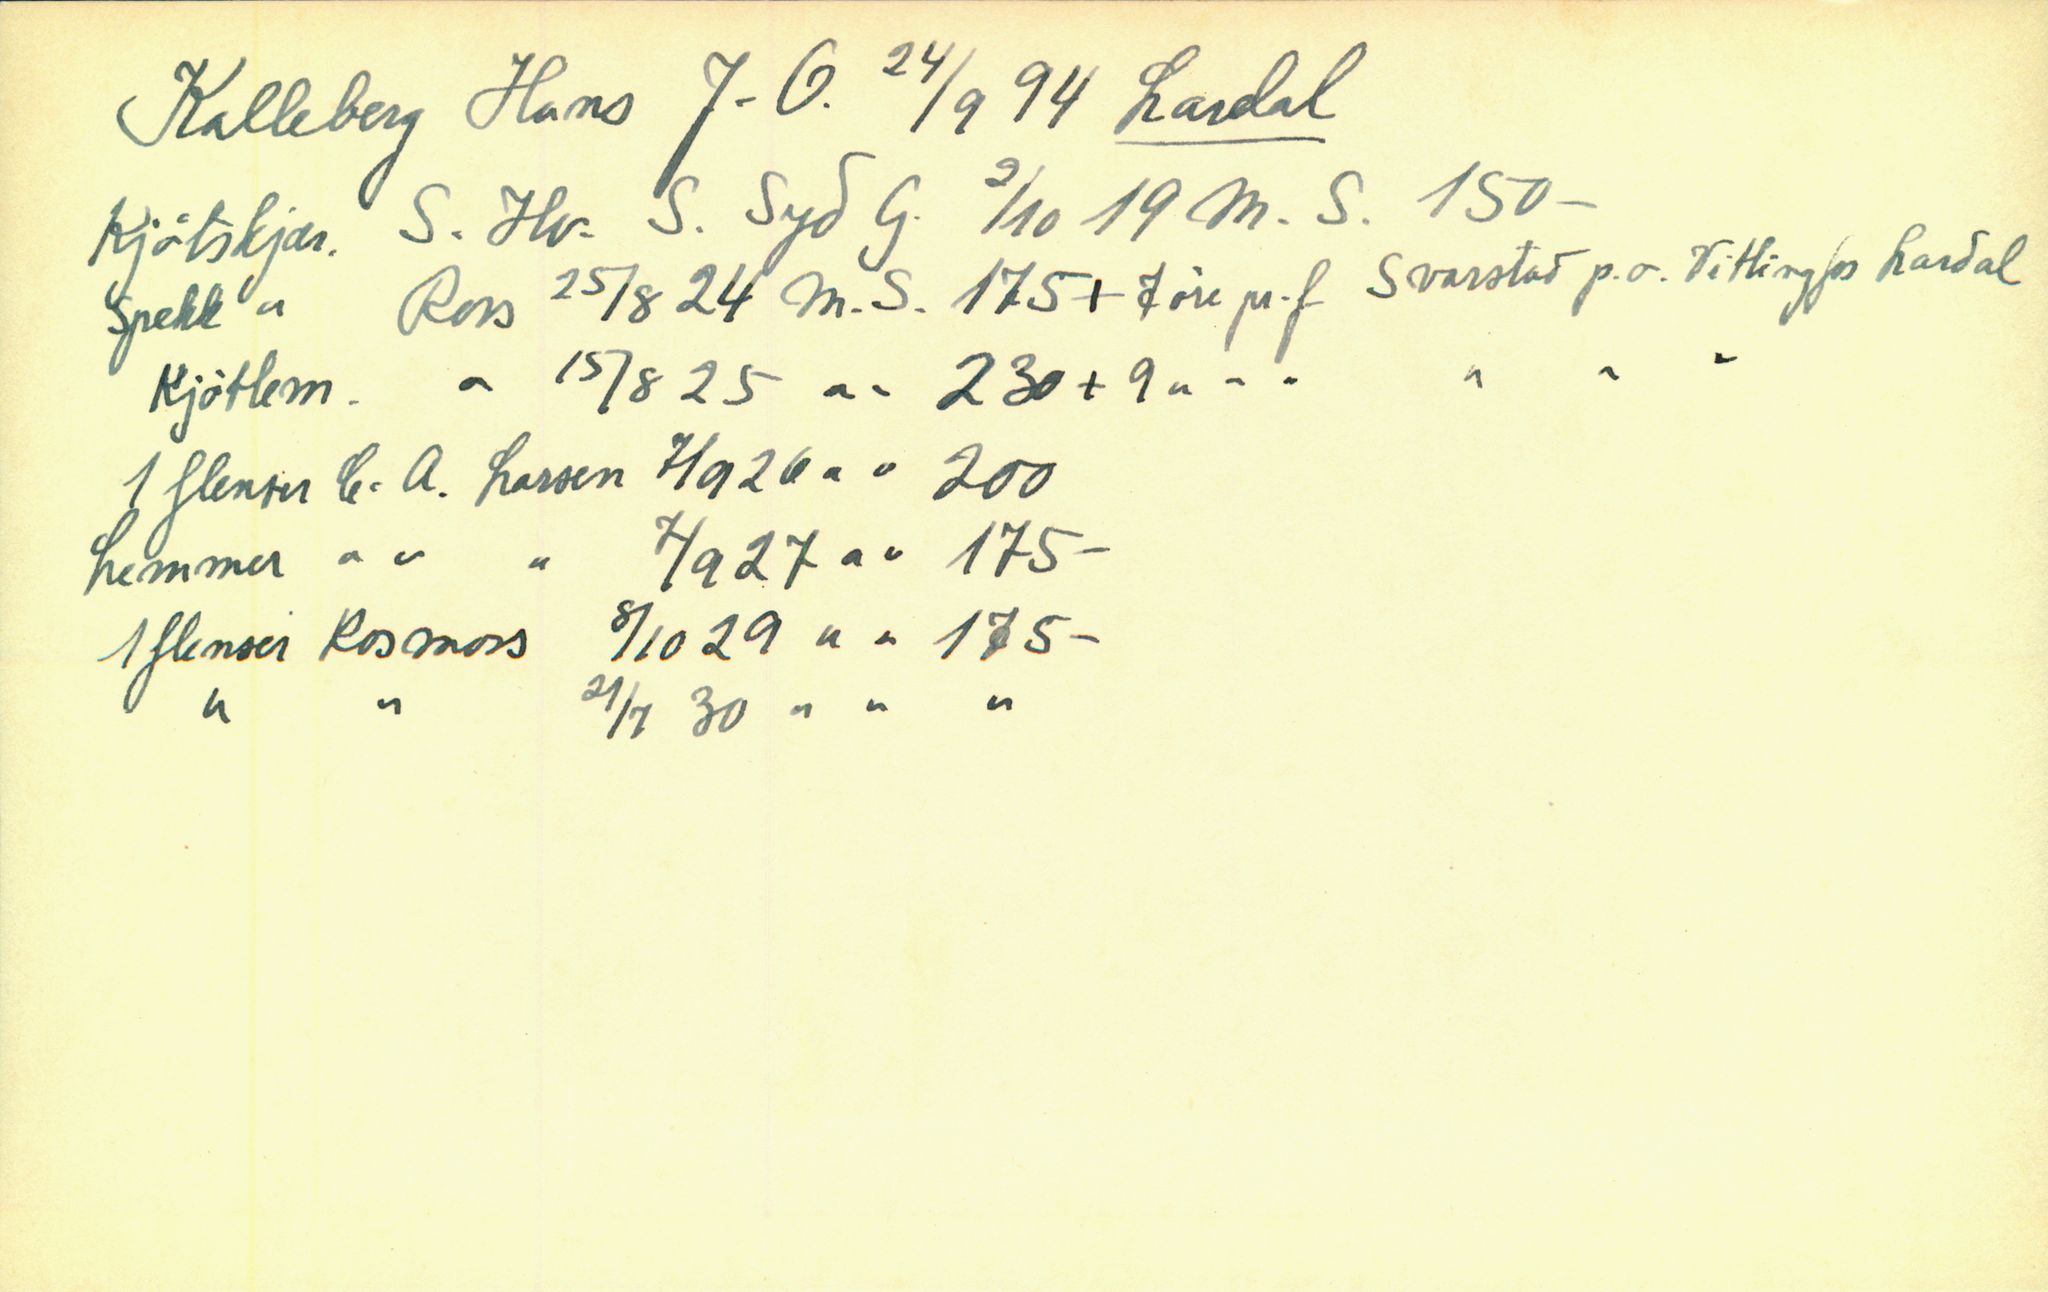 Kalleberg Hans J-O. 24/9 94 Lardal
Kjötskjær. S. Hv. S. Syd G. 2/10 19 M. S. 150-
Spekk " Ross 25/8 24 M. S. 175 + 7 öre pr. f Svarstad p.o. Vittingfos Lardal
Kjötlem. " 15/8 25 " " 230 + 9 " " " " " "
1 flenser C. A. Larsen 7/9 26 " " 200
Lemmer " " " 7/9 27 " " 175-
1 flenser Kosmos 8/10 29 " " 175-
" " 21/7 30 " " "